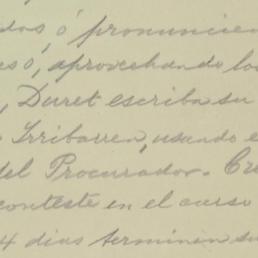 dos, ó pronuncien
es ó, aprovechando los
, Duret escriba su
Irribarren, usando e
del Procurador. Cu
conteste en el curso
4 dias terminen su